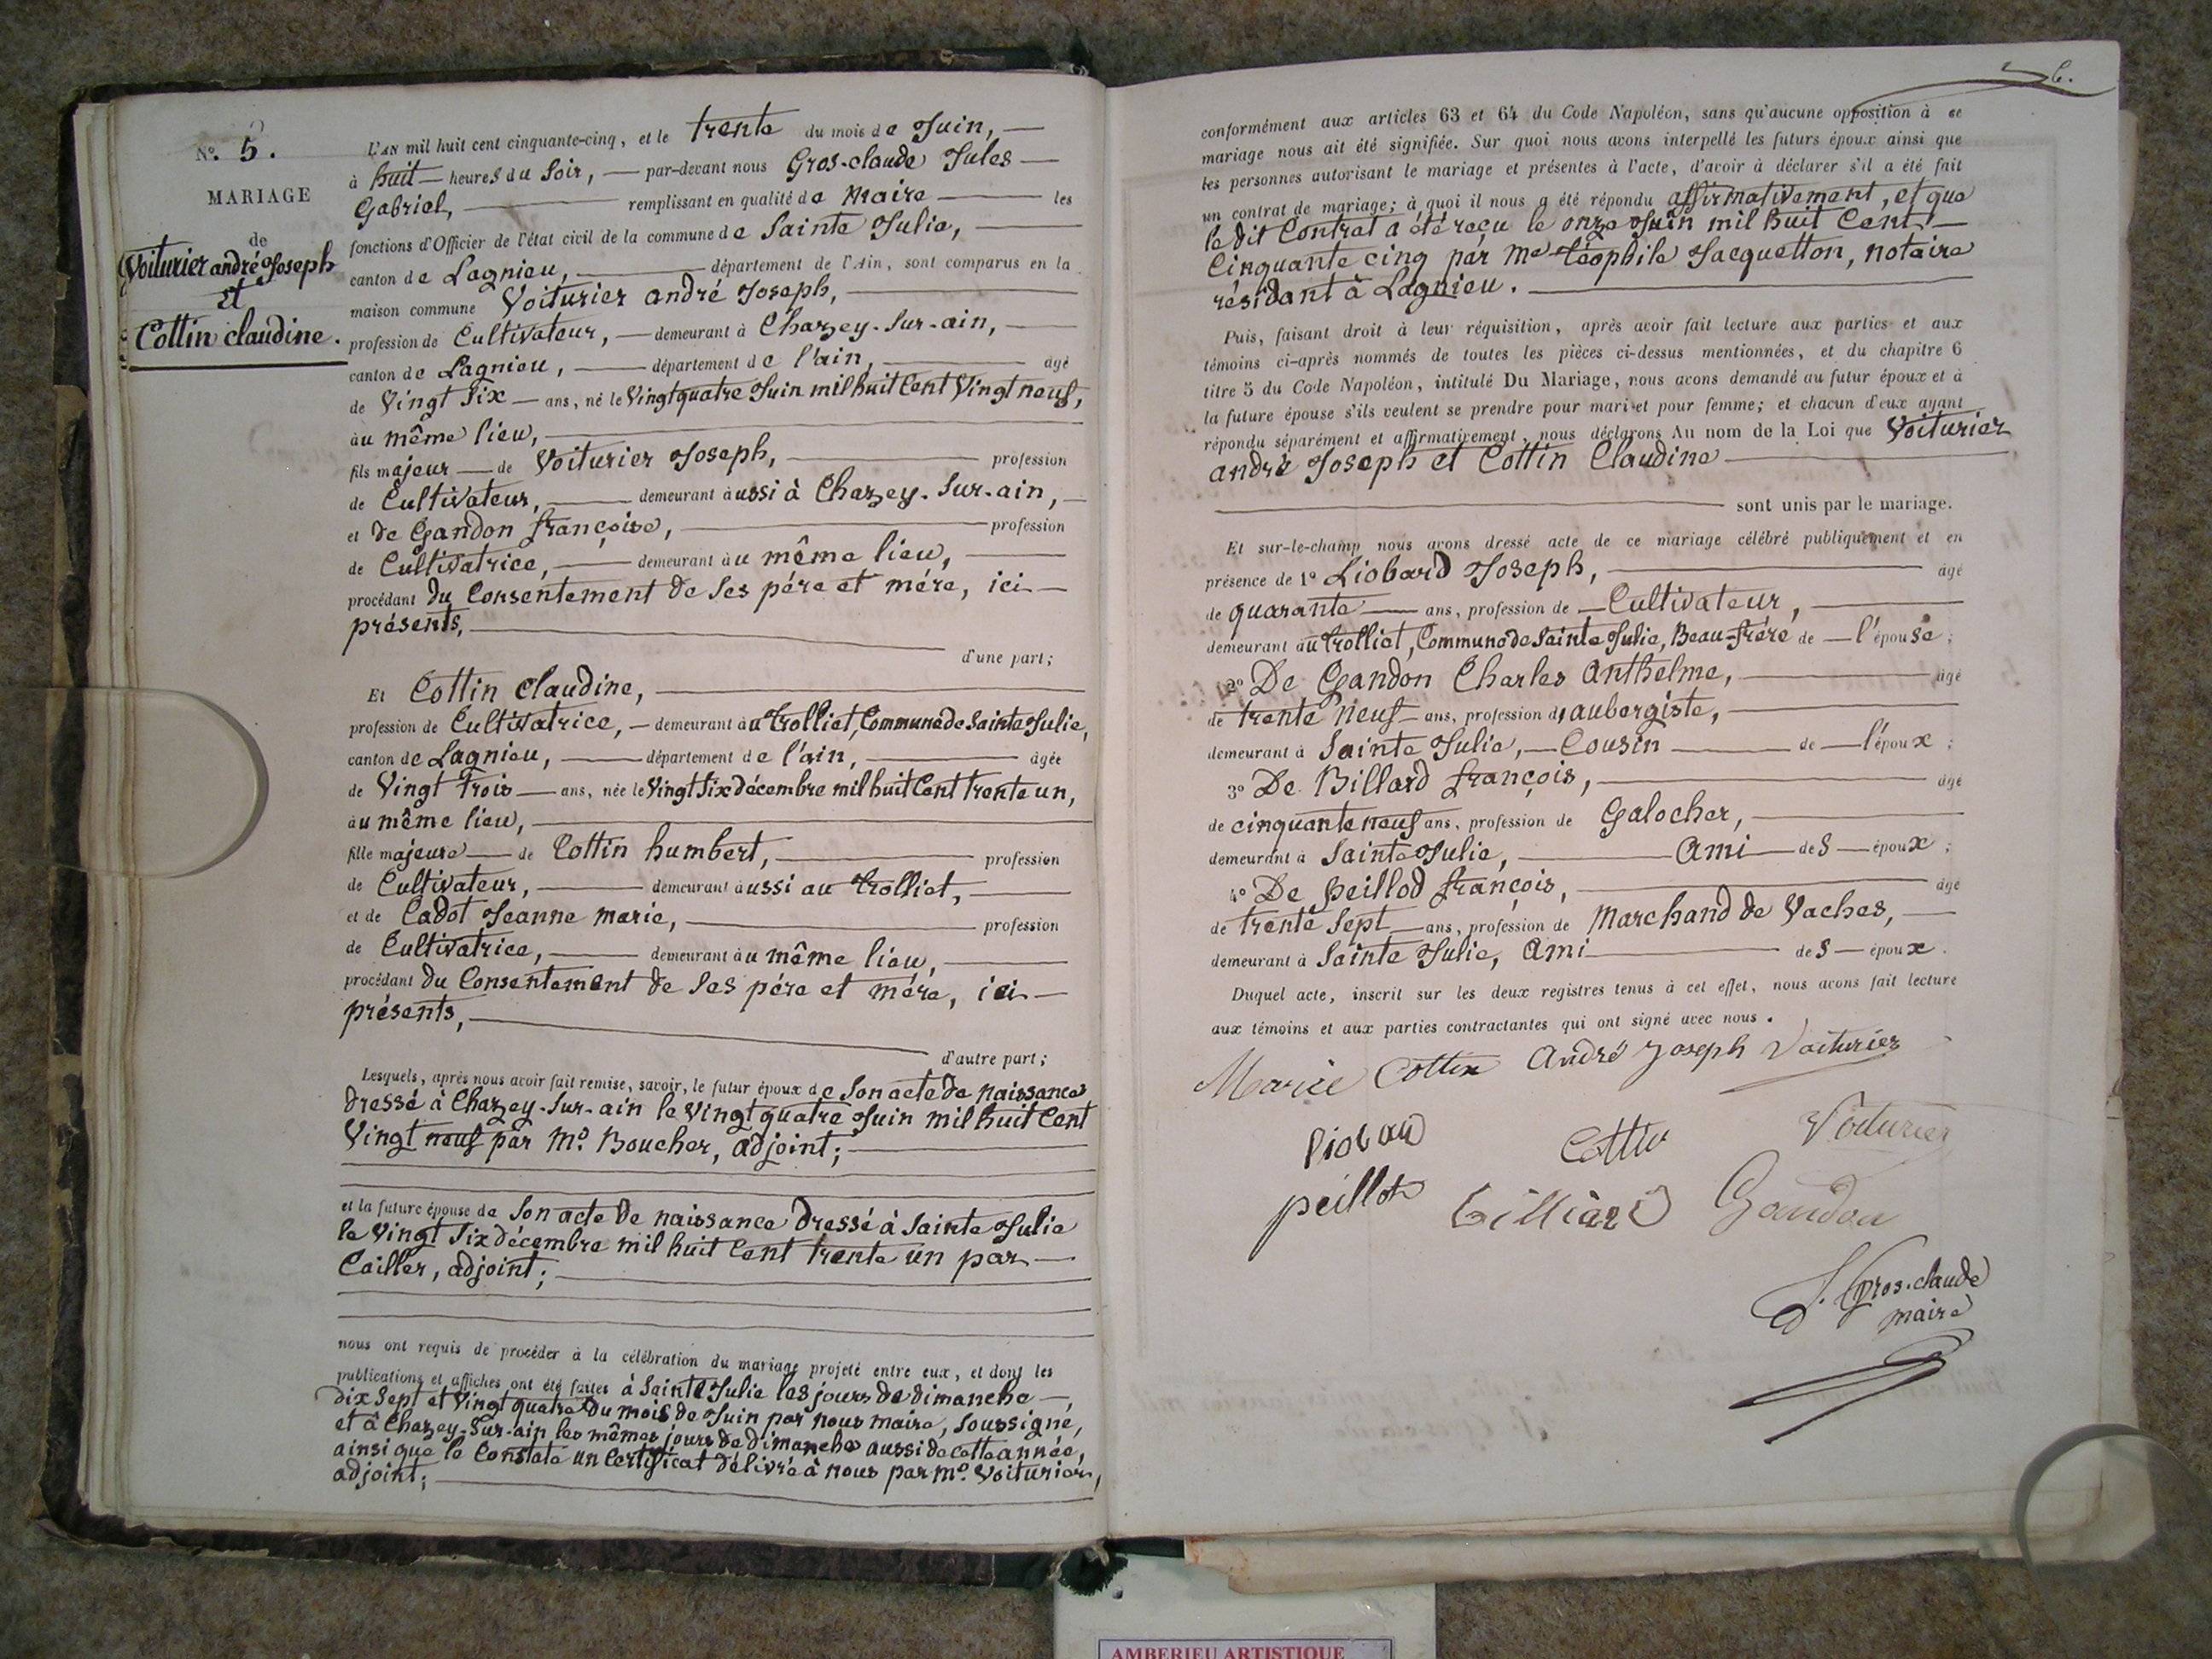 N°. 5.
MARIAGE
de
Voiturier andré Joseph
Et
Cottin claudine.
L'AN mil huit cent cinquante-cinq, et le trente du mois de Juin,
à huit heures du Soir, par-devant nous Gros-claude Jules
Gabriel, remplissant en qualité de Maire les
fonctions d'Officier de l'état civil de la commune de Sainte Julie,
canton de Lagnieu, département de l'Ain, sont comparus en la
maison commune Voiturier andré Joseph,
profession de Cultivateur, demeurant à Chazey-Sur-ain,
canton de Lagnieu, département de l'ain, âgé
de Vingt Six ans, né le Vingt quatre Juin mil huit Cent Vingt neuf,
au même lieu,
fils majeur de Voiturier Joseph, profession
de Cultivateur, demeurant aussi à Chazey-Sur-ain,
et de Gandon françoise, profession
de Cultivatrice, demeurant au même lieu,
procédant du Consentement de Ses pére et mére, ici
présents,
d'une part;
Et Cottin Claudine,
profession de Cultivatrice, demeurant au trolliet, Commune de Sainte Julie,
canton de Lagnieu, département de l'ain, âgée
de Vingt trois ans, née le Vingt Six décembre mil huit Cent trente un,
au même lieu,
fille majeure de Cottin humbert, profession
de Cultivateur, demeurant aussi au trolliet,
et de Cadot Jeanne marie, profession
de Cultivatrice, demeurant au même lieu,
procédant du Consentement de Ses pére et mére, ici
présents,
d'autre part;
Lesquels, après nous avoir fait remise, savoir, le futur époux de Son acte de Naissance
dressé à Chazey-Sur-ain le Vingt quatre Juin mil huit Cent
Vingt neuf par Mr. Boucher, adjoint;
et la future épouse de Son acte de naissance dressé à Sainte Julie
le Vingt Six décembre mil huit Cent trente un par
Cailler, adjoint;
nous ont requis de procéder à la célébration du mariage projeté entre eux, et dont les
publications et affiches ont été faites à Sainte Julie les jours de dimanche
dix Sept et Vingt quatre du mois de Juin par nous maire, Soussigné,
et à Chazey-Sur-ain les mêmes jours de dimanche aussi de cette année,
ainsi que le Constate un Certificat délivré à nous par mr. Voiturier,
adjoint;
6.
conformément aux articles 63 et 64 du Code Napoléon, sans qu'aucune opposition à ce
mariage nous ait été signifiée. Sur quoi nous avons interpellé les futurs époux ainsi que
les personnes autorisant le mariage et présentes à l'acte, d'avoir à déclarer s'il a été fait
un contrat de mariage; à quoi il nous a été répondu affirmativement, et que
le dit Contrat a été reçu le onze Juin mil huit Cent
Cinquante cinq par Me téophile Jacquetton, notaire
résidant à Lagnieu.
Puis, faisant droit à leur réquisition, après avoir fait lecture aux parties et aux
témoins ci-après nommés de toutes les pièces ci-dessus mentionnées, et du chapitre 6
titre 5 du Code Napoléon, intitulé Du Mariage, nous avons demandé au futur époux et à
la future épouse s'ils veulent se prendre pour mari et pour femme; et chacun d'eux ayant
répondu séparément et affirmativement, nous déclarons Au nom de la Loi que Voiturier
andré Joseph et Cottin Claudine
sont unis par le mariage.
Et sur-le-champ nous avons dressé acte de ce mariage célébré publiquement et en
présence de 1° Liobard Joseph, âgé
de quarante ans, profession de Cultivateur,
demeurant au trolliet, Commune de Sainte Julie, Beau-frère de l'épouse;
2° De Gandon Charles Anthelme, âgé
de trente neuf ans, profession d'aubergiste,
demeurant à Sainte Julie, Cousin de l'époux;
3° De Billard françois, âgé
de cinquante neuf ans, profession de Galocher,
demeurant à Sainte Julie, Ami des époux;
4° De peillod françois, âgé
de trente Sept ans, profession de Marchand de Vaches,
demeurant à Sainte Julie, Ami des époux.
Duquel acte, inscrit sur les deux registres tenus à cet effet, nous avons fait lecture
aux témoins et aux parties contractantes qui ont signé avec nous.
Marie Cottin André Joseph Voiturier
Cottin Voiturier
peillot billiard Gandon
J. Gros-claude
maire
AMBERIEU ARTISTIQUE